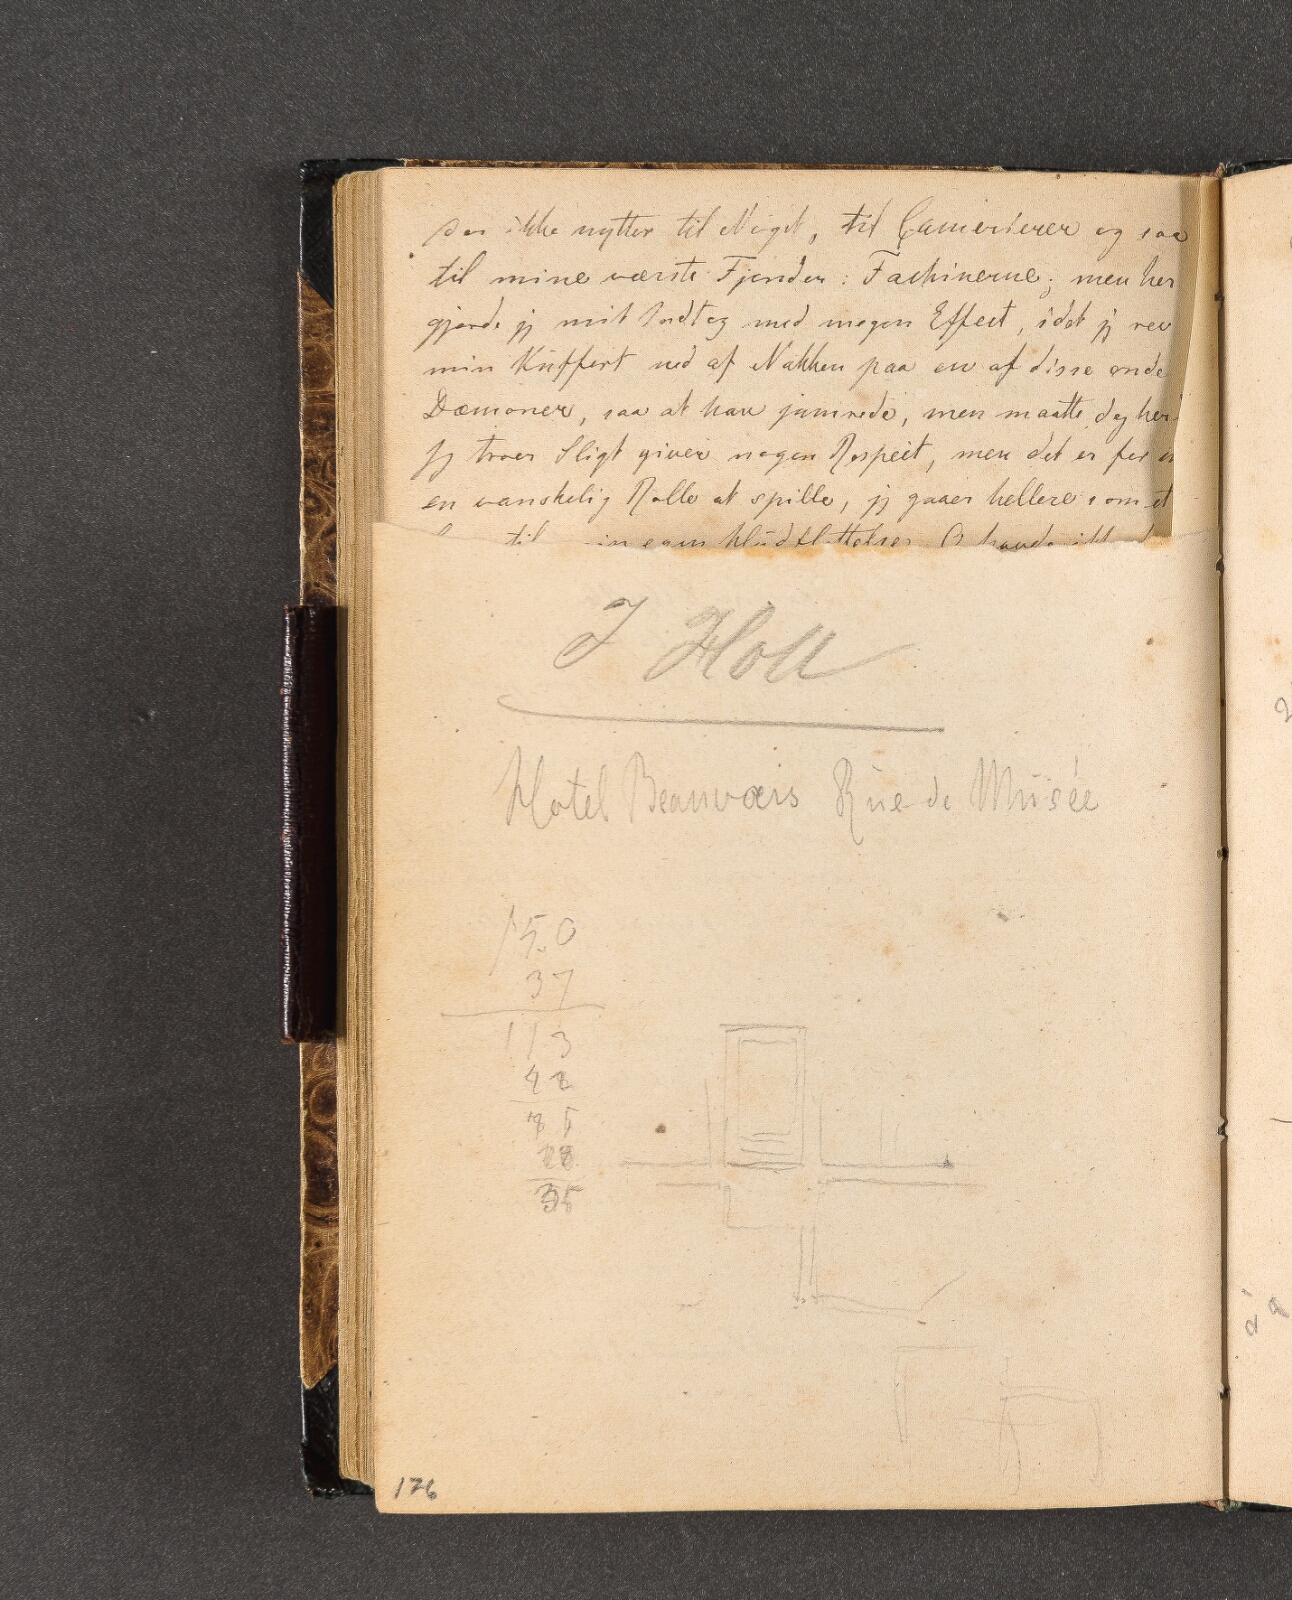 der ikke nytter til Noget, til Camerierer og saa
til mine værste Fjender: Fachinerne; men her
gjorde jg mit Indtog med megen Effect, idet jg rev
min Kuffert ned af Nakken paa en af disse onde
Dæmoner, saa at han jamrede, men maatte dog
Jg troer Sligt giver nogen Respect, men det er for
en vanskelig Rolle at spille, jg gaaer hellere som et
til min egen
J Holl
Hotel Beauvais Rue de Musée
150
37
113
42
35
176